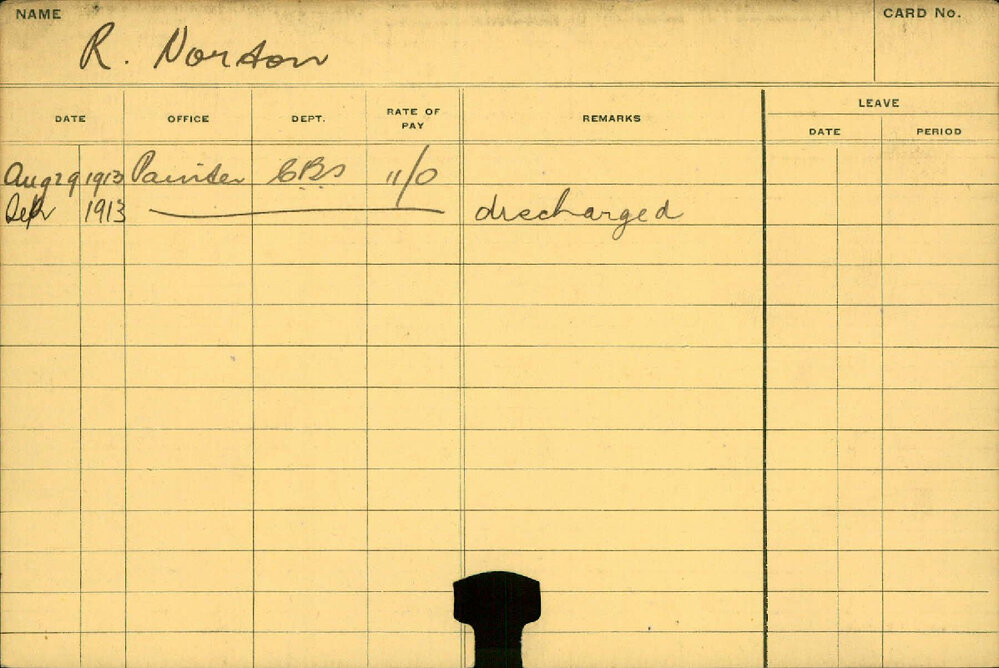 NAME
CARD No.
R. Norton
DATE OFFICE DEPT. RATE OF PAY REMARKS LEAVE
DATE PERIOD
Aug 29 1913 Painter CBs 11/0
Sep 1913 discharged